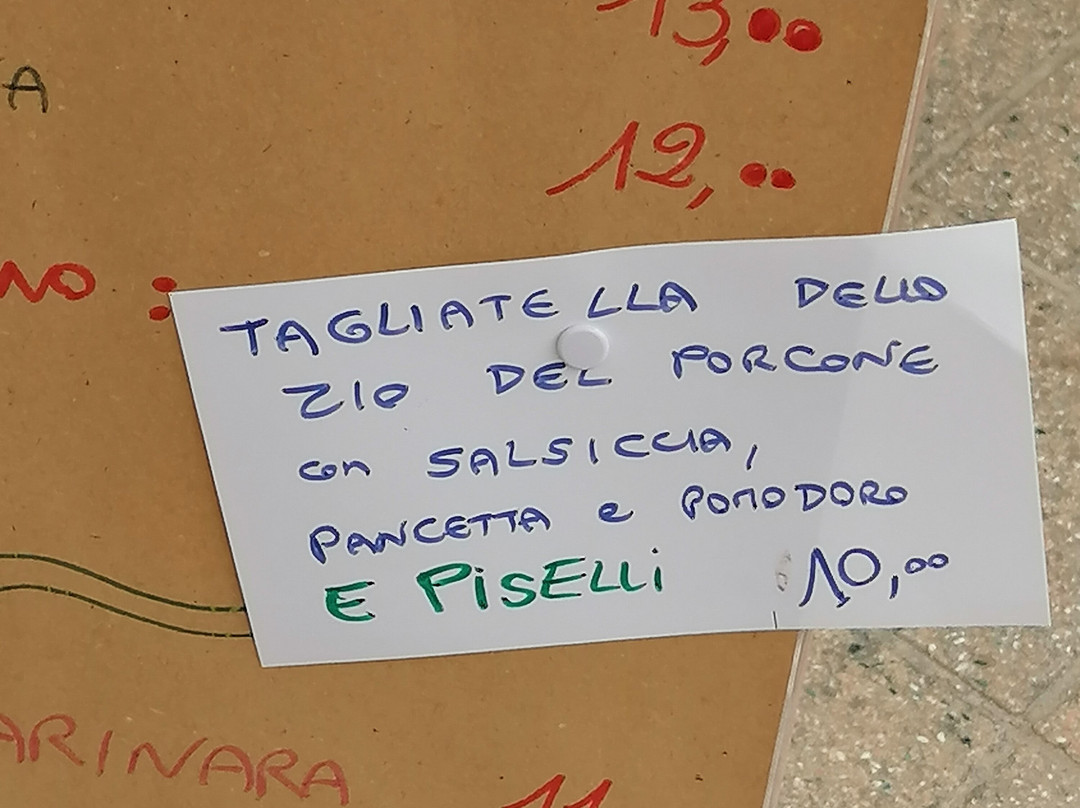 13,00
A
12,00
NO :
TAGLIATELLA DELLO
ZIO DEL PORCONE
con SALSICCIA,
PANCETTA e POMODORO
E PISELLI 10,00
ARINARA
11